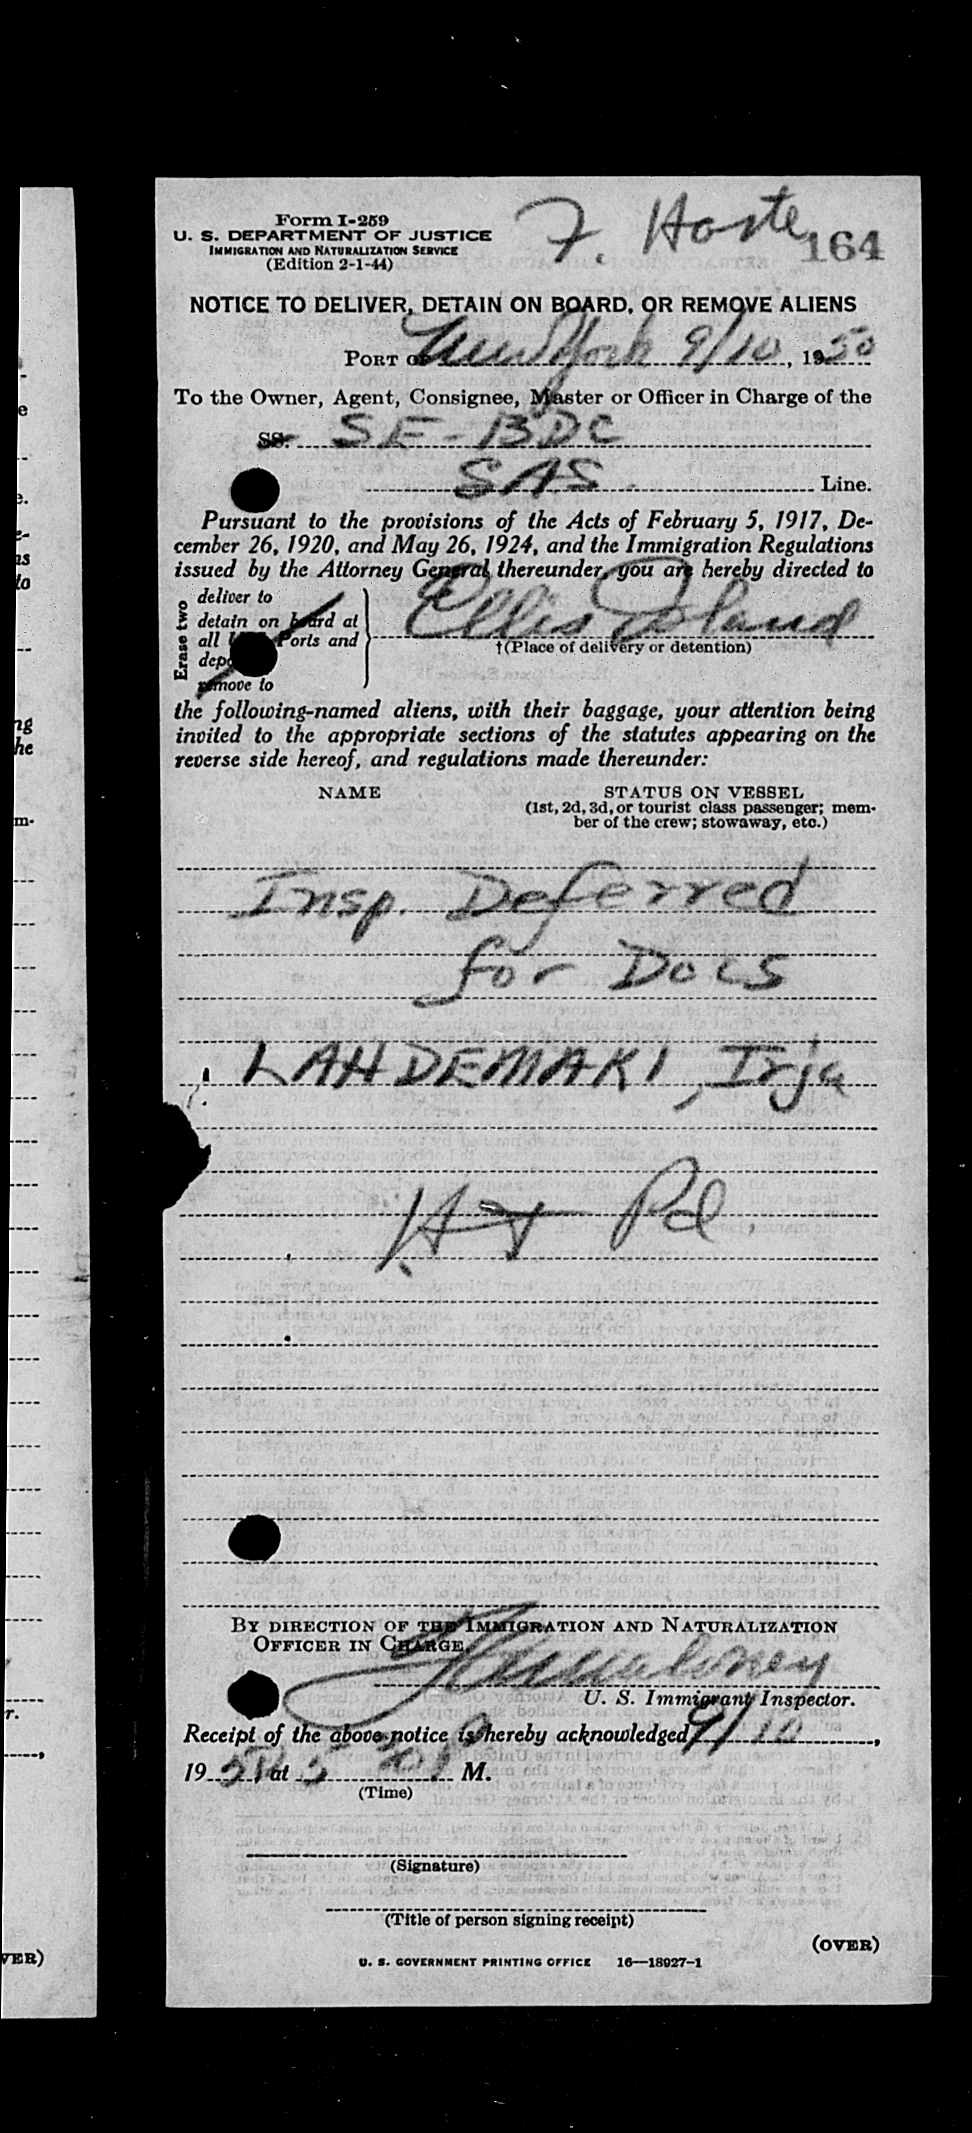 Form I-259
U. S. DEPARTMENT OF JUSTICE
IMMIGRATION AND NATURALIZATION SERVICE
(Edition 2-1-44)
F. Haste
164
NOTICE TO DELIVER, DETAIN ON BOARD, OR REMOVE ALIENS
PORT OF New York 9/10, 1950
To the Owner, Agent, Consignee, Master or Officer in Charge of the
SS. SE-BDC
SAS Line.
Pursuant to the provisions of the Acts of February 5, 1917, De-
cember 26, 1920, and May 26, 1924, and the Immigration Regulations
issued by the Attorney General thereunder, you are hereby directed to
Erase two
deliver to
detain on board at
all Ports and
remove to
Ellis Island
†(Place of delivery or detention)
the following-named aliens, with their baggage, your attention being
invited to the appropriate sections of the statutes appearing on the
reverse side hereof, and regulations made thereunder:
NAME STATUS ON VESSEL
(1st, 2d, 3d, or tourist class passenger; mem-
ber of the crew; stowaway, etc.)
Insp. Deferred
for Docs
LAHDEMAKI, Irja
BY DIRECTION OF THE IMMIGRATION AND NATURALIZATION
OFFICER IN CHARGE.
U. S. Immigrant Inspector.
Receipt of the above notice is hereby acknowledged 9/10,
19 at M.
(Time)
(Signature)
(Title of person signing receipt)
(OVER)
U. S. GOVERNMENT PRINTING OFFICE 16—18927-1